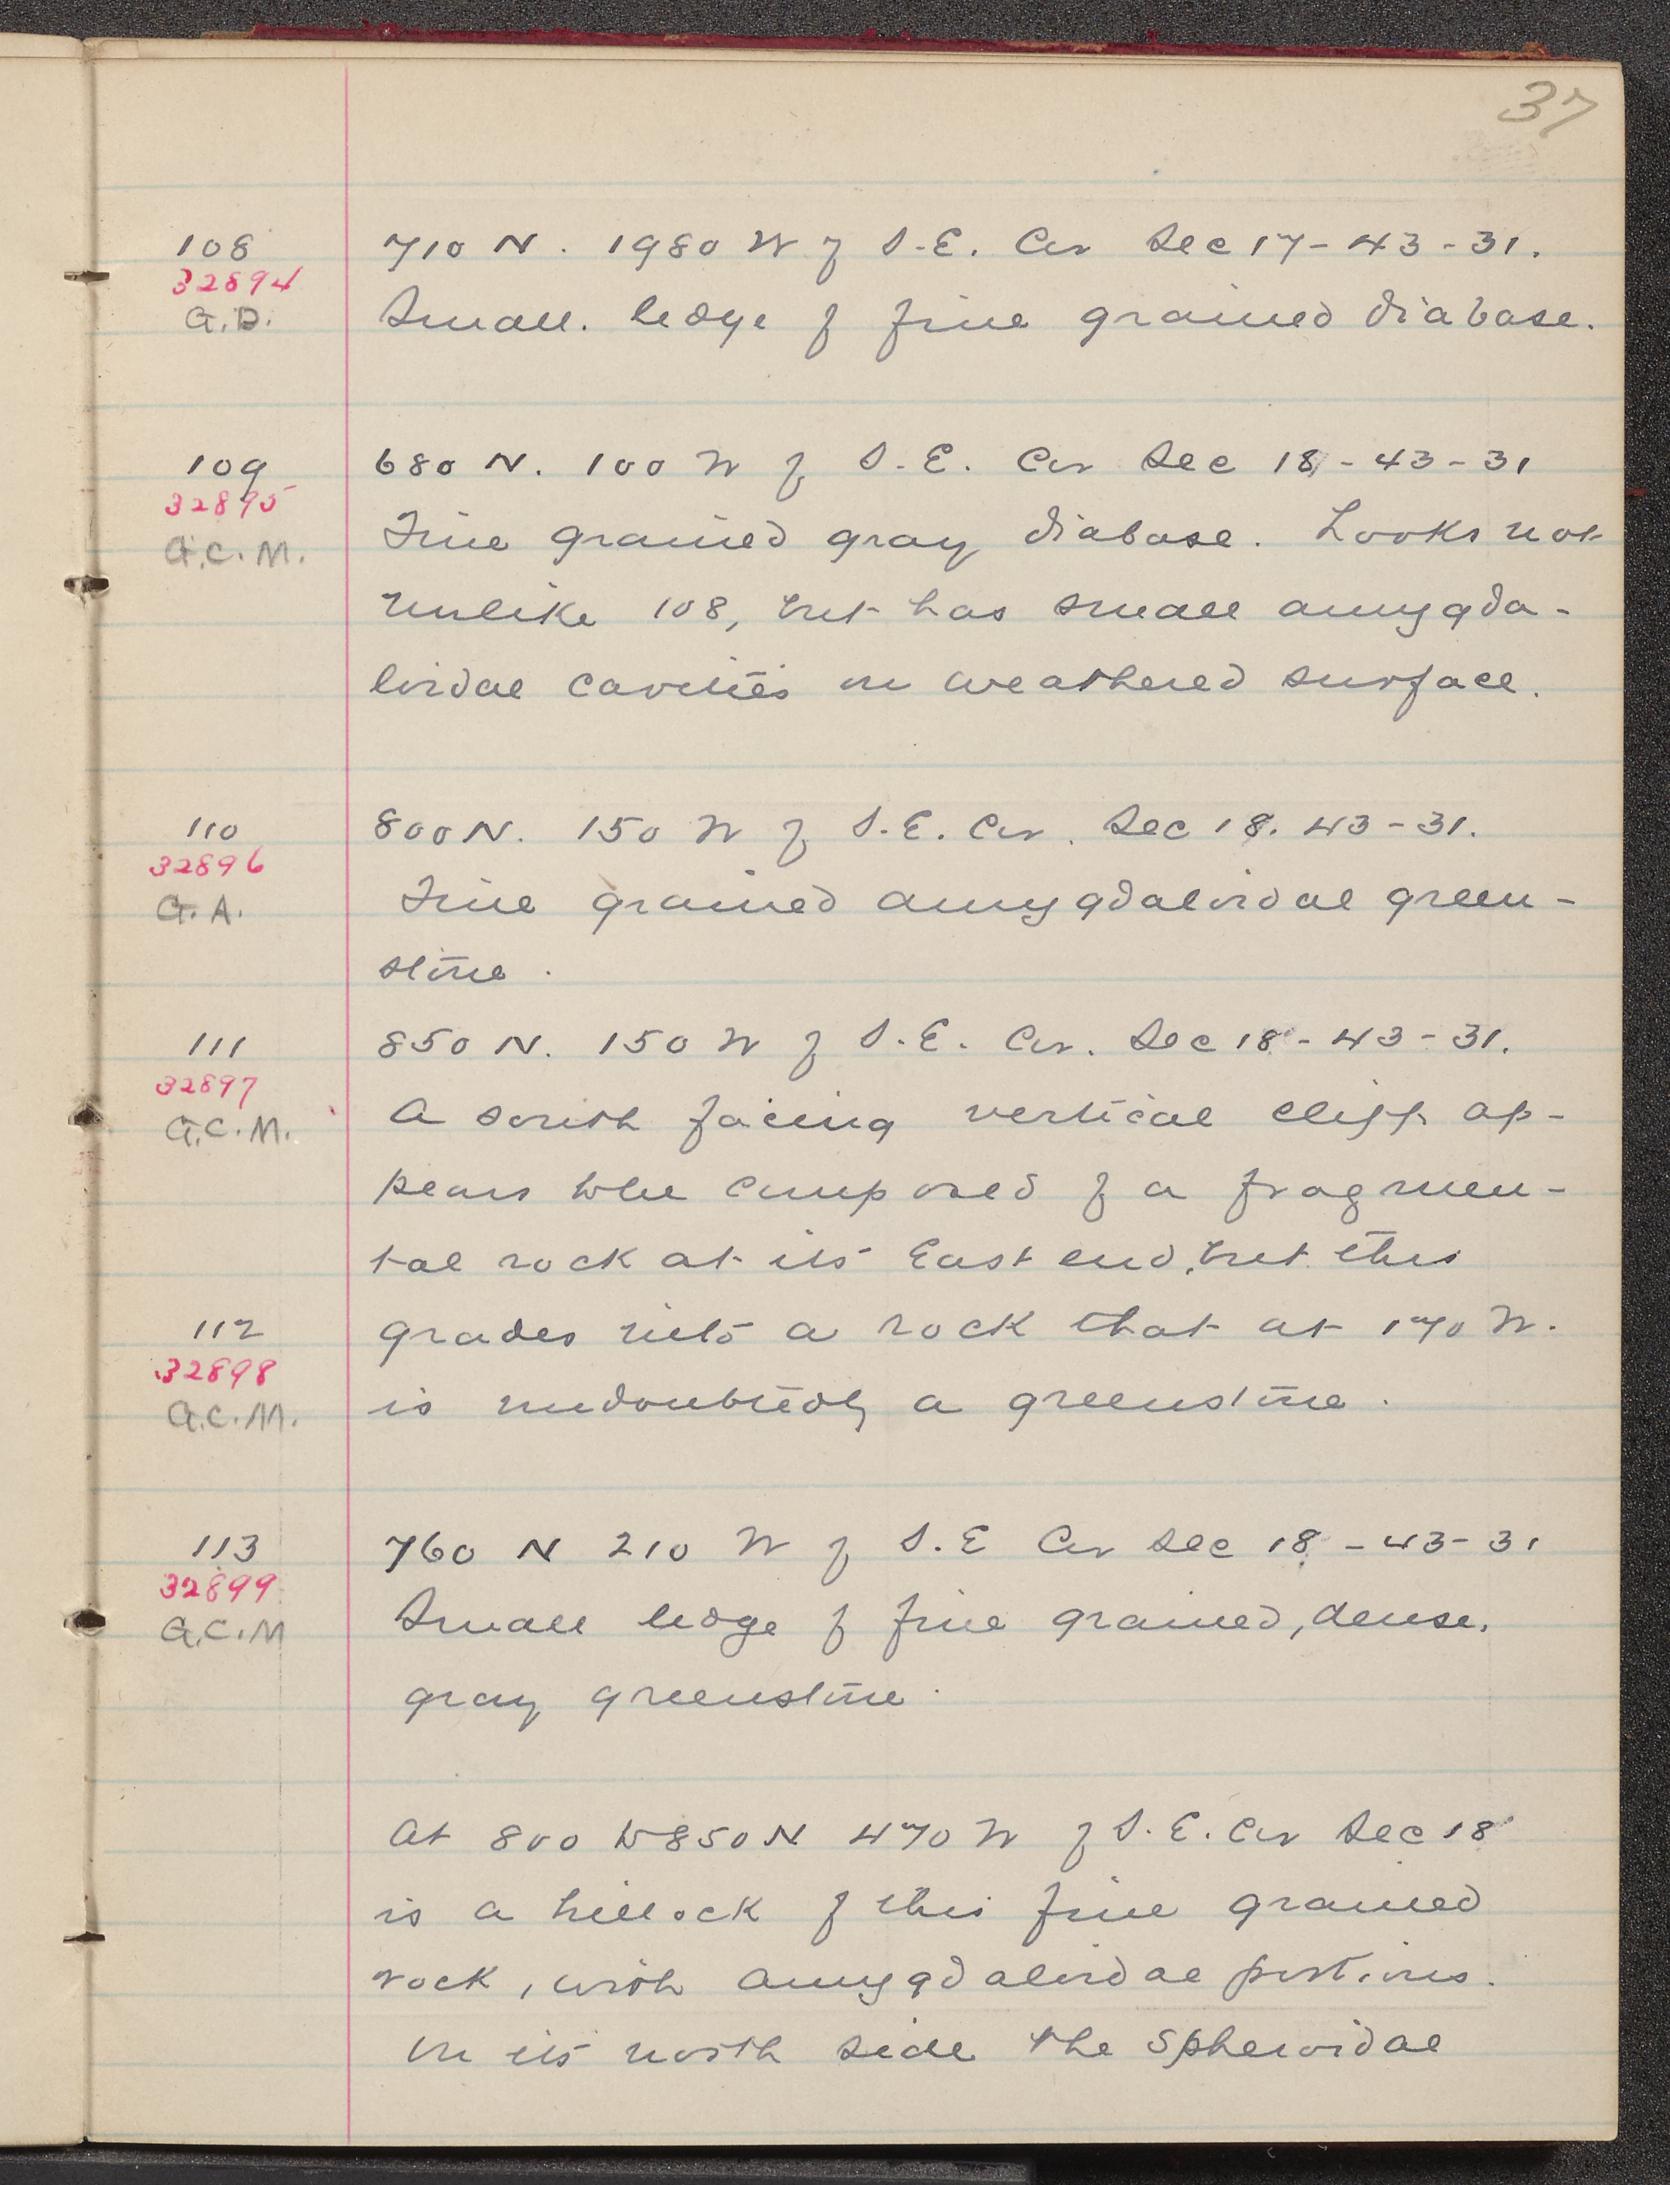 37
108 710 N. 1980 W of S.E. Cor Sec 17-43-31.
32894
G.D. Small. ledge of fine grained diabase.
109 680 N. 100 W of S.E. Cor Sec 18-43-31
32895
G.C.M. Fine grained gray diabase. Looks not
unlike 108, but has small amygda-
loidal cavities on weathered surface.
110 800 N. 150 W of S.E. Cor. Sec 18. 43-31.
32896
G.A. Fine grained amygdaloidal green-
stone.
111 850 N. 150 W of S.E. Cor. Sec 18-43-31.
32897
G.C.M. A south facing vertical cliff ap-
pears to be composed of a fragmen-
tal rock at its East end, but this
112 grades into a rock that at 170 W.
32898
G.C.M. is undoubtedly a greenstone.
113 760 N 210 W of S.E Cor Sec 18-43-31
32899
G.C.M Small ledge of fine grained, dense,
gray greenstone.
At 800 to 850 N 470 W of S.E. Cor Sec 18
is a hillock of this fine grained
rock, with amygdaloidal portions.
On its north side the spheroidal